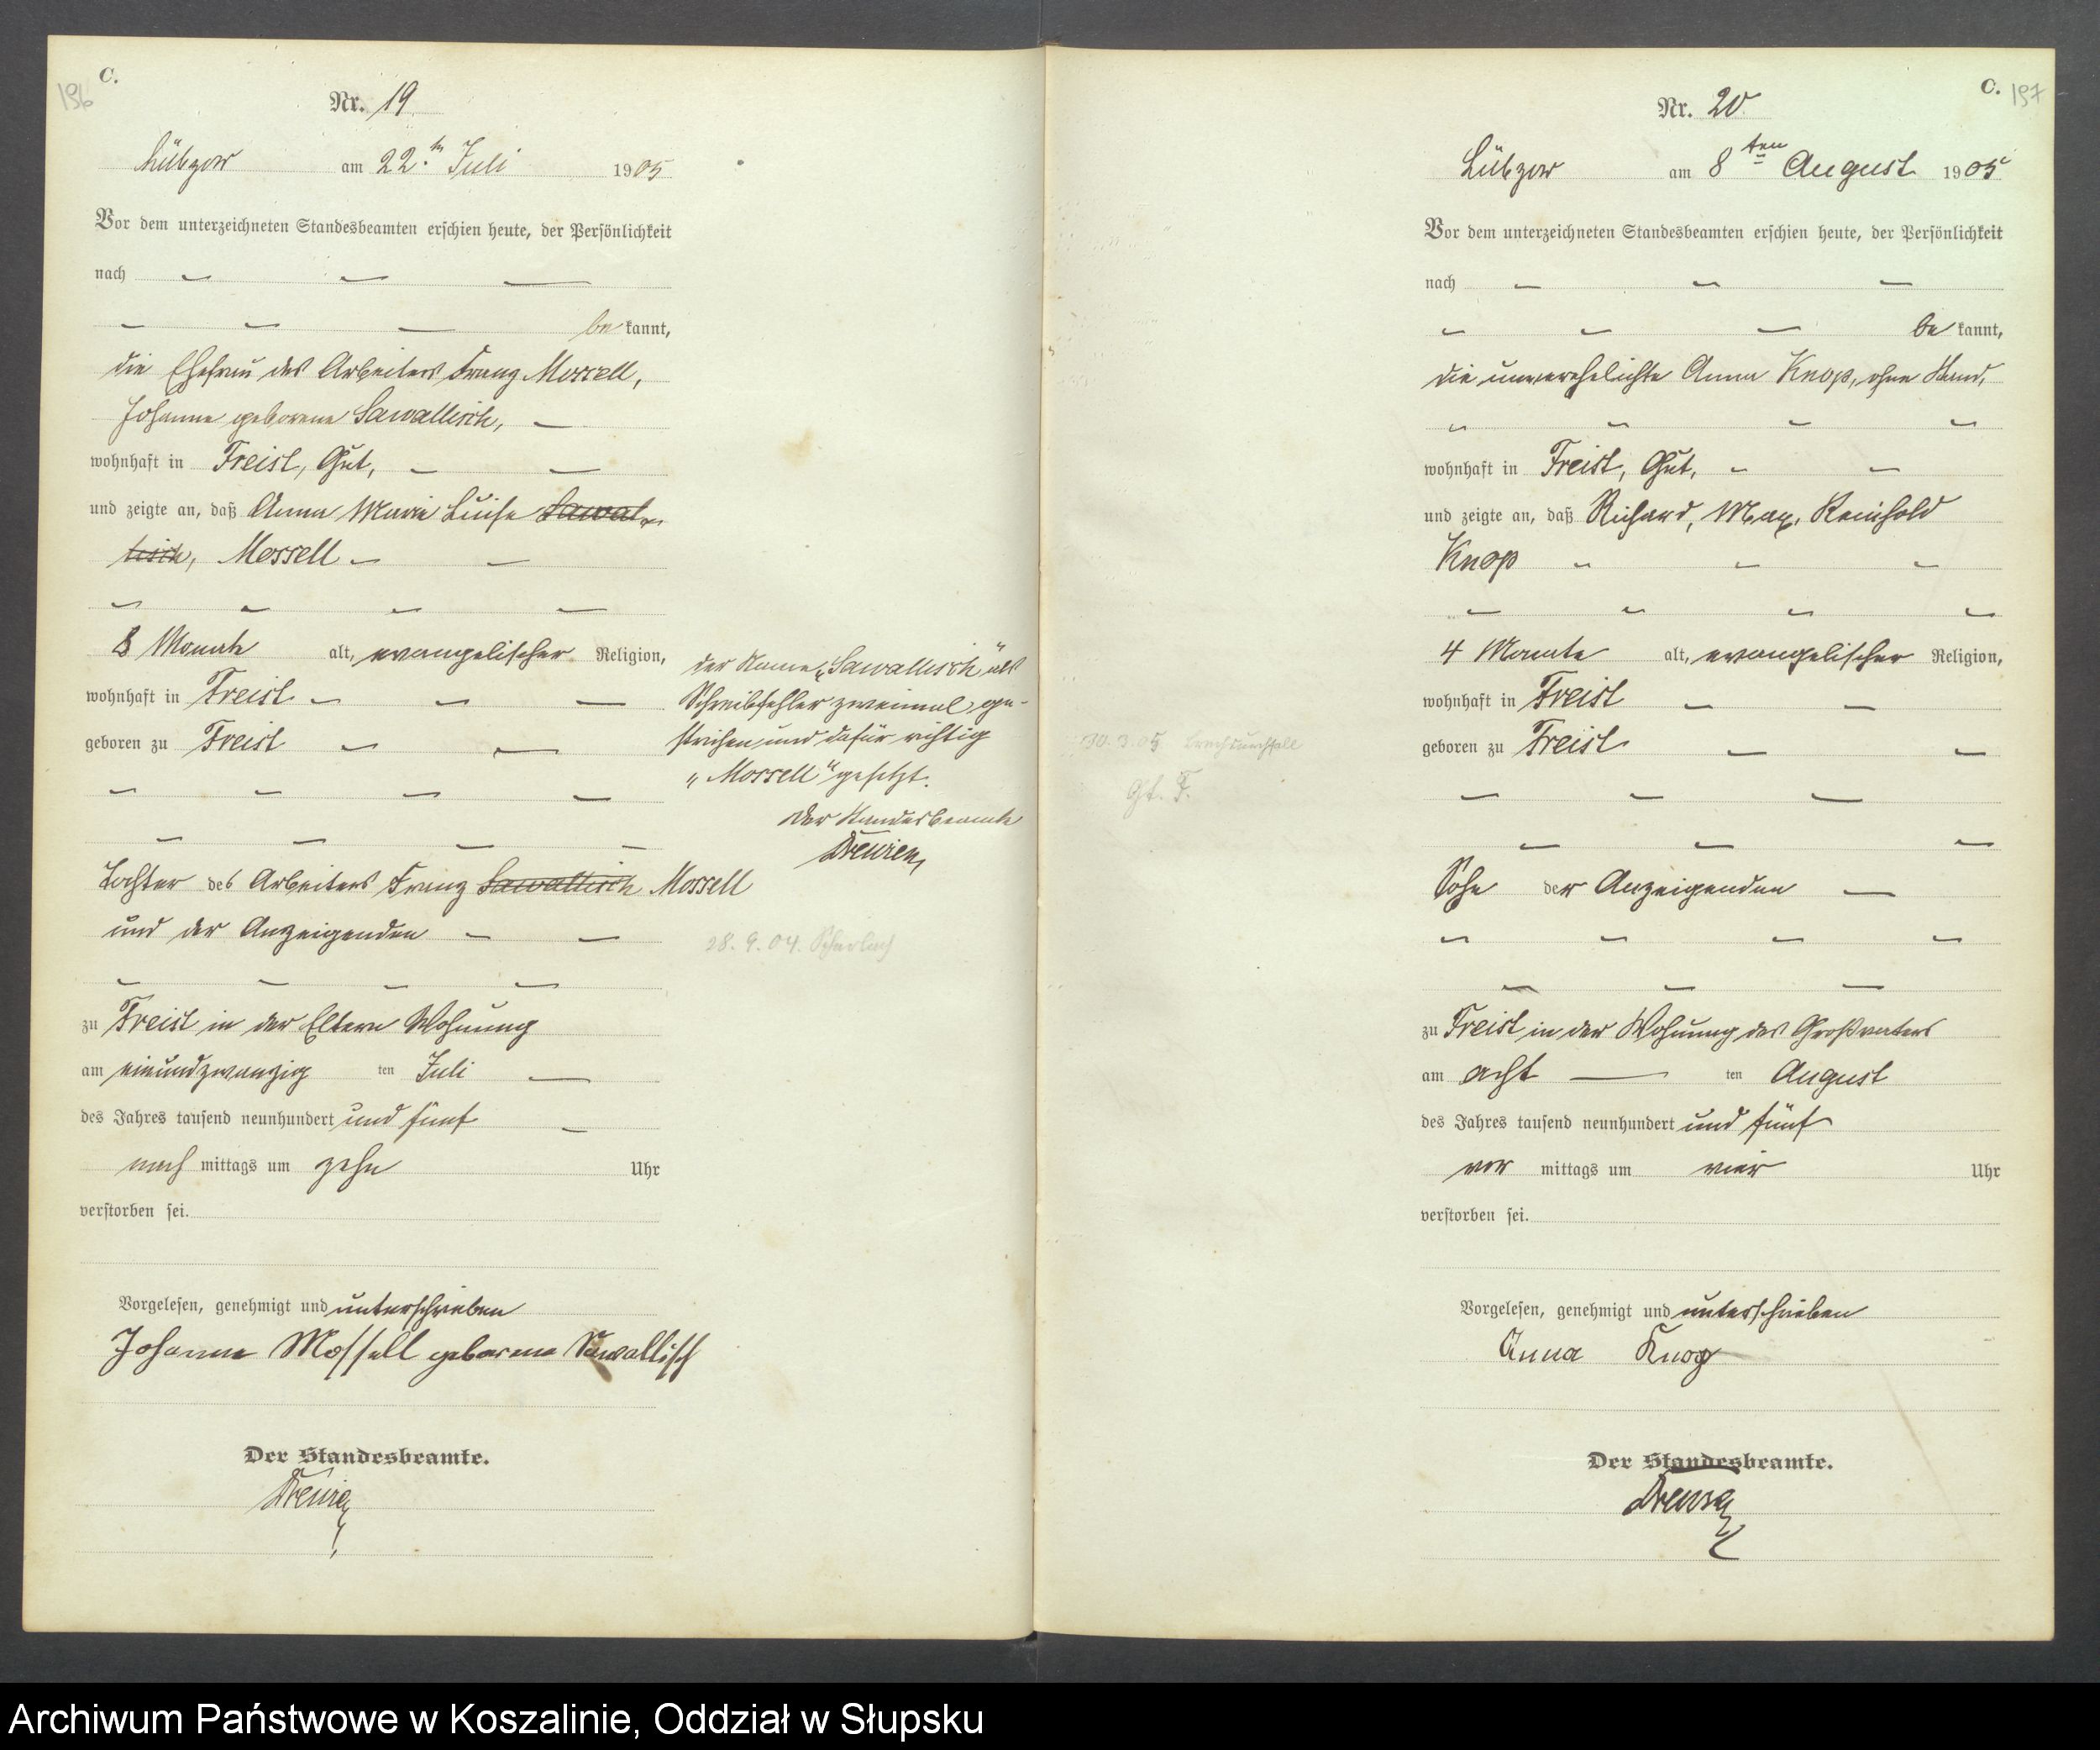 C.
196
Nr. 19
Lübzow am 22.ten Juli 1905
Vor dem unterzeichneten Standesbeamten erschien heute, der Persönlichkeit
nach
be kannt,
die Ehefrau des Arbeiters Franz Mossell,
Johanne geborene Sawallisch,
wohnhaft in Freist, Gut,
und zeigte an, daß Anna Marie Luise Sawal-
lisch, Mossell
8 Monate alt, evangelischer Religion,
wohnhaft in Freist
geboren zu Freist
Tochter des Arbeiters Franz Sawallisch Mossell
und der Anzeigenden
zu Freist in der Eltern Wohnung
am einundzwanzig ten Juli
des Jahres tausend neunhundert und fünf
nach mittags um zehn Uhr
verstorben sei.
Vorgelesen, genehmigt und unterschrieben
Johanne Mossell geborene Sawallisch
Der Standesbeamte.
der Name „Sawallisch" als
Schreibfehler zweimal ge-
strichen und dafür richtig
„Mossell" gesetzt.
Der Standesbeamte
28. 9. 04. Scharlach
C. 197
Nr. 20
Lübzow am 8ten August 1905
Vor dem unterzeichneten Standesbeamten erschien heute, der Persönlichkeit
nach
be kannt,
die unverehelichte Anna Knop, ohne Stand,
wohnhaft in Freist, Gut,
und zeigte an, daß Richard, Max, Reinhold
Knop
4 Monate alt, evangelischer Religion,
wohnhaft in Freist
geboren zu Freist
Sohn der Anzeigenden
zu Freist in der Wohnung des Großvaters
am acht ten August
des Jahres tausend neunhundert und fünf
vor mittags um vier Uhr
verstorben sei.
Vorgelesen, genehmigt und unterschrieben
Anna Knop
Der Standesbeamte.
30. 3. 05 Brechdurchfall
Gt. F.
Archiwum Państwowe w Koszalinie, Oddział w Słupsku